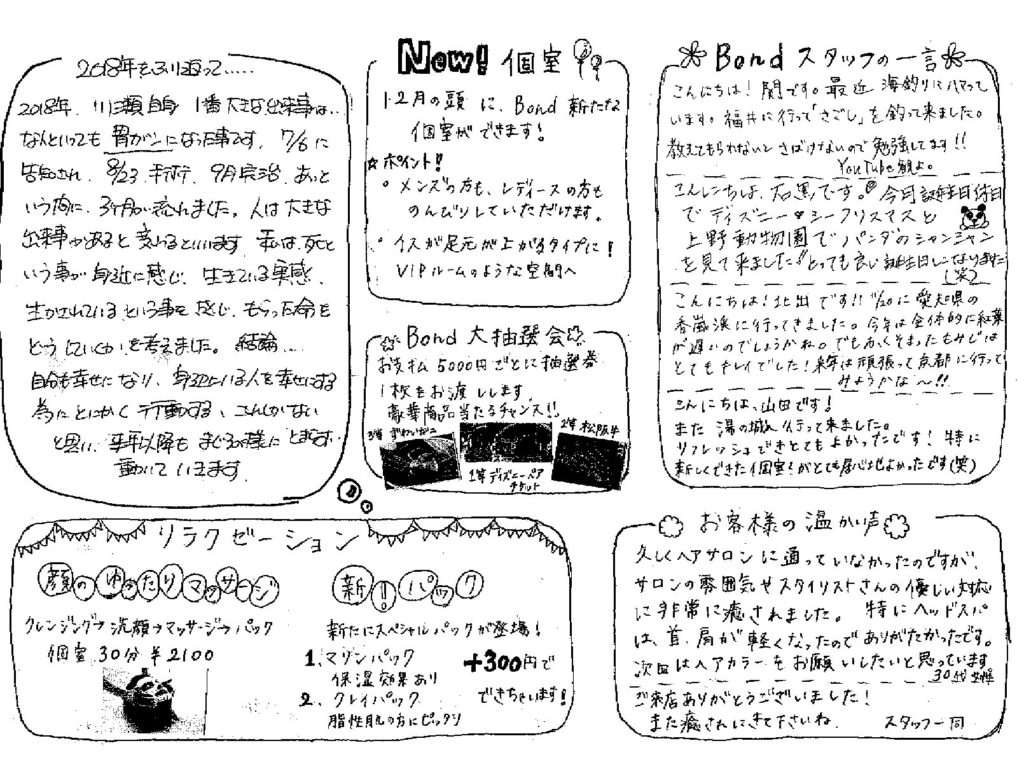 2018年をふり返って......
2018年、川瀬自身 1番大きな出来事は、
なんといっても 胃がんになった事です。7/6に
告知され、8/23 手術、9月完治、あっと
いう間に、3ヶ月が流れました。人は大きな
出来事があると変わるといいます 私は、死と
いう事が身近に感じ、生きている実感、
生かされている という事を感じ、もらった命を
どうしていくかを考えました。結論...
自分も幸せになり、身近にいる人を幸せにする
為に とにかく 行動する、これしかない
と思い、来年以降も まぐろの様に とまらず、
動いていきます。
New! 個室
12月の頭に、Bond 新たな
個室ができます!
☆ポイント!
• メンズの方も、レディースの方も
のんびりしていただけます。
• イスが足元が上がるタイプに!
VIPルームのような空間へ
Bond 大抽選会
お支払 5000円ごとに抽選券
1枚をお渡しします。
豪華商品当たるチャンス!!
3等 ずわいがに
2等 松阪牛
1等 ディズニーペア
チケット
Bond スタッフの一言
こんにちは!関です。最近 海釣りにハマって
います。福井に行って「さごし」を釣って来ました。
教えてもらわないと さばけないので 勉強してます!!
YouTube観よ。
こんにちは、石黒です。今月誕生日休日
で ディズニー♥シークリスマスと
上野動物園で パンダのシャンシャン
を見て来ました♪とっても良い誕生日になりました
(笑)
こんにちは!北出です!! 11/20に愛知県の
香嵐渓に行ってきました。今年は全体的に紅葉
が遅いのでしょうかね。でもあくそまったもみじは
とてもキレイでした!来年は頑張って京都に行って
みようかな〜!!
こんにちは、山田です!
また 湯の城へ行って来ました。
リフレッシュできとても良かったです!特に
新しくできた個室がとても居心地よかったです(笑)
リラクゼーション
顔のゆったりマッサージ
クレンジング→洗顔→マッサージ→パック
個室 30分 ¥2100
新!パック
新たにスペシャルパックが登場!
1. マリンパック
保湿効果あり
+300円で
2. クレイパック
できちゃいます!
脂性肌の方にピッタリ
お客様の温かい声
久しくヘアサロンに通っていなかったのですが、
サロンの雰囲気やスタイリストさんの優しい対応
に非常に癒されました。特にヘッドスパ
は、首、肩が軽くなったのでありがたかったです。
次回はヘアカラーをお願いしたいと思っています
30代女性
ご来店ありがとうございました!
また癒されにきて下さいね。 スタッフ一同